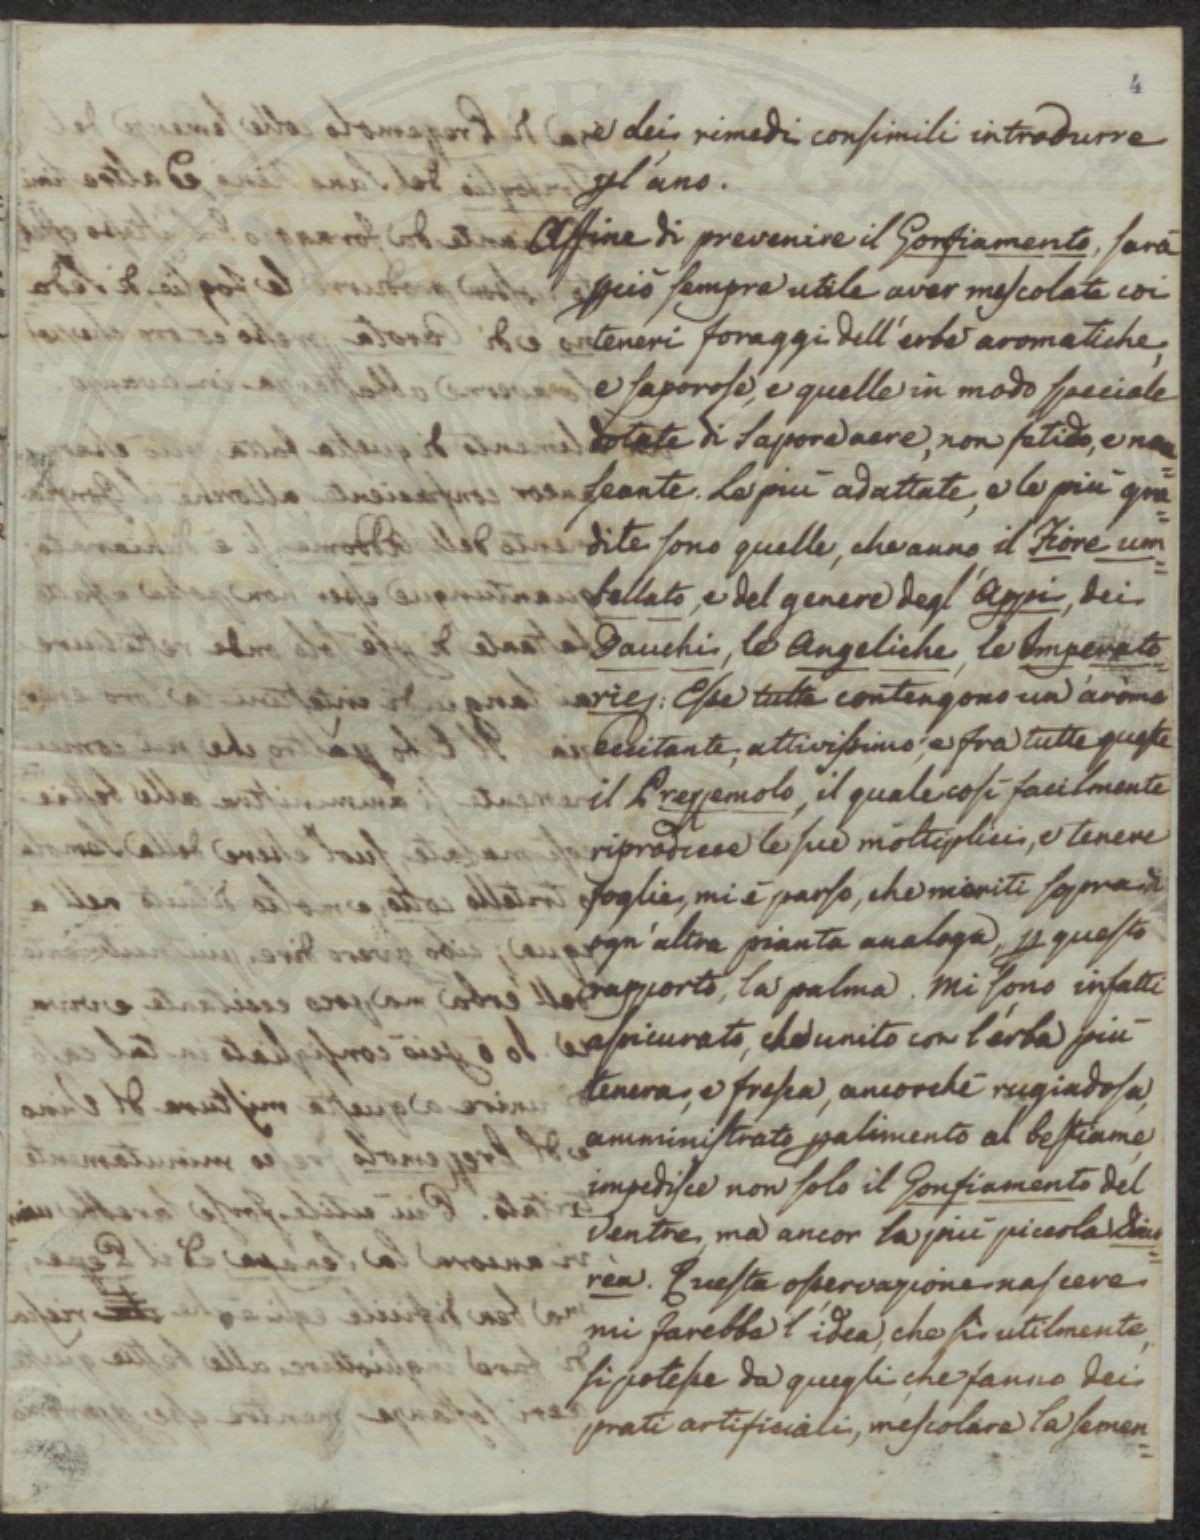 4
e dei rimedi consimili introdurre
pl'ano.
Affine di prevenire il Gonfiamento, sarà
più sempre utile aver mescolate coi
teneri foraggi dell'erbe aromatiche,
e saporose, e quelle in modo speciale
dotate di sapore acre, non fetido, e nau=
seante. Le più adattate, e le più gra=
dite sono quelle, che anno il Fiore um=
bellato, e del genere degl'Appi, dei
Dauchi, le Angeliche, le Imperato=
rie: Esse tutte contengono un aroma
eccitante, attivissimo; e fra tutte queste
il Prezzemolo, il quale così facilmente
riproduce le sue moltiplici, e tenere
foglie, mi è parso, che meriti sopra di
ogn'altra pianta analoga, p questo
rapporto, la palma. Mi sono infatti
assicurato, che unito con l'erba più
tenera, e fresca, ancorchè rugiadosa,
amministrato p alimento al bestiame,
impedisce non solo il Gonfiamento del
ventre, ma ancor la più piccola Diar=
rea. Questa osservazione nascere
mi farebbe l'idea, che sì utilmente,
si potesse da quegli, che fanno dei
prati artificiali, mescolare la semen=